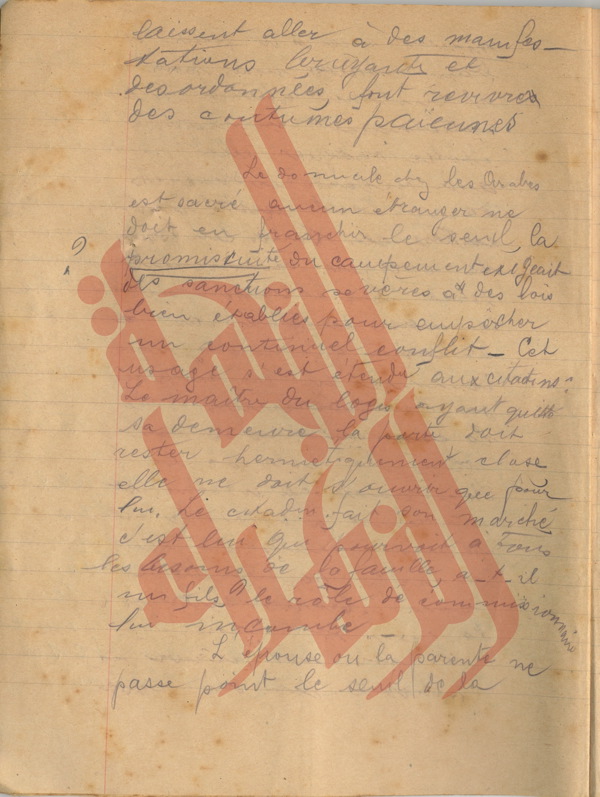 laissent aller à des manifes–
tations bruyantes et
desordonnées, font revivre
des coutumes païennes
Le domicile chez les Arabes
est sacré aucun étranger ne
doit en franchir le seuil, la
? promiscuité du campement exigeait
des sanctions sevères et des lois
bien établies pour empêcher
un continuel conflit – Cet
usage s'est étendu aux citadins:
Le maître du logis ayant quitté
sa demeure la porte doit
rester hermétiquement close
elle ne doit s'ouvrir que pour
lui. Le citadin fait son marché
c'est lui qui pourvoit à tous
les besoins de la famille, a-t-il
un fils? le rôle de commissionnaire
lui incombe
L'épouse ou la parente ne
passe point le seuil de la